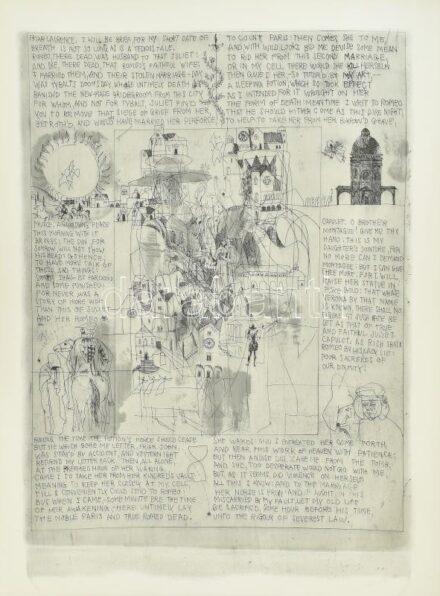 FRIAR LAURENCE, I WILL BE BRIEF, FOR MY SHORT DATE OF
BREATH IS NOT SO LONG AS IS A TEDIOUS TALE.
ROMEO, THERE DEAD, WAS HUSBAND TO THAT JULIET:
AND SHE, THERE DEAD, THAT ROMEO'S FAITHFUL WIFE:
I MARRIED THEM, AND THEIR STOLEN MARRIAGE-DAY
WAS TYBALT'S DOOMSDAY, WHOSE UNTIMELY DEATH
BANISHD THE NEW-MADE BRIDEGROOM FROM THIS CITY
FOR WHOM, AND NOT FOR TYBALT, JULIET PIN'D
YOU TO REMOVE THAT SIEGE OF GRIEF FROM HER
BETROTH'D, AND WOULD HAVE MARRIED HER PERFORCE
TO COUNT PARIS: THEN COMES SHE TO ME,
AND WITH WILD LOOKS BID ME DEVISE SOME MEAN
TO RID HER FROM THIS SECOND MARRIAGE,
OR IN MY CELL THERE WOULD SHE KILL HERSELF
THEN GAVE I HER, SO TUTOR'D BY MY ART
A SLEEPING POTION WHICH SO TOOK EFFECT
AS I INTENDED, FOR IT WROUGHT ON HER
THE FORM OF DEATH: MEANTIME I WRIT TO ROMEO
THAT HE SHOULD HITHER COME AS THIS DIRE NIGHT
TO HELP TO TAKE HER FROM HER BORROW'D GRAVE,
PEACE
THIS MORNING WITH IT
BRINGS: THE SUN FOR
SORROW WILL NOT SHOW
HIS HEAD: GO HENCE,
TO HAVE MORE TALK OF
THESE SAD THINGS:
SOME SHALL BE PARDONED
AND SOME PUNISHED:
FOR NEVER WAS A
STORY OF MORE WOE
THAN THIS OF JULIET
AND HER ROMEO
CAPULET: O BROTHER
MONTAGUE! GIVE ME THY
HAND: THIS IS MY
DAUGHTER'S JOINTURE, FOR
NO MORE CAN I DEMAND
MONTAGUE: BUT I CAN GIVE
THEE MORE: FOR I WILL
RAISE HER STATUE IN
PURE GOLD: THAT WHILE
VERONA BY THAT NAME
IS KNOWN, THERE SHALL NO
FIGURE AT SUCH RATE BE
SET AS THAT OF TRUE
AND FAITHFUL JULIET
CAPULET: AS RICH SHALL
ROMEO BY HIS LADY LIE:
POOR SACRIFICES OF
OUR ENMITY!
BEING THE TIME THE POTION'S FORCE SHOULD CEASE
BUT HE WHICH BORE MY LETTER, FRIAR JOHN,
WAS STAY'D BY ACCIDENT, AND YESTERNIGHT
RETURN'D MY LETTER BACK. THEN ALL ALONE
AT THE PREFIXED HOUR OF HER WAKING
CAME I TO TAKE HER FROM HER KINDRED'S VAULT:
MEANING TO KEEP HER CLOSELY AT MY CELL
TILL I CONVENIENTLY COULD SEND TO ROMEO:
BUT WHEN I CAME, SOME MINUTE ERE THE TIME
OF HER AWAKENING, HERE UNTIMELY LAY
THE NOBLE PARIS AND TRUE ROMEO DEAD.
SHE WAKES: AND I ENTREATED HER COME FORTH,
AND BEAR THIS WORK OF HEAVEN WITH PATIENCE:
BUT THEN A NOISE DID SCARE ME FROM THE TOMB.
AND SHE, TOO DESPERATE WOULD NOT GO WITH ME,
BUT AS IT SEEMS, DID VIOLENCE ON HERSELF
ALL THIS I KNOW; AND TO THE MARRIAGE
HER NURSE IS PRIVY: AND IF AUGHT IN THIS
MISCARRIED BY MY FAULT, LET MY OLD LIFE
BE SACRIFIC'D, SOME HOUR BEFORE HIS TIME,
UNTO THE RIGOUR OF SEVEREST LAW.